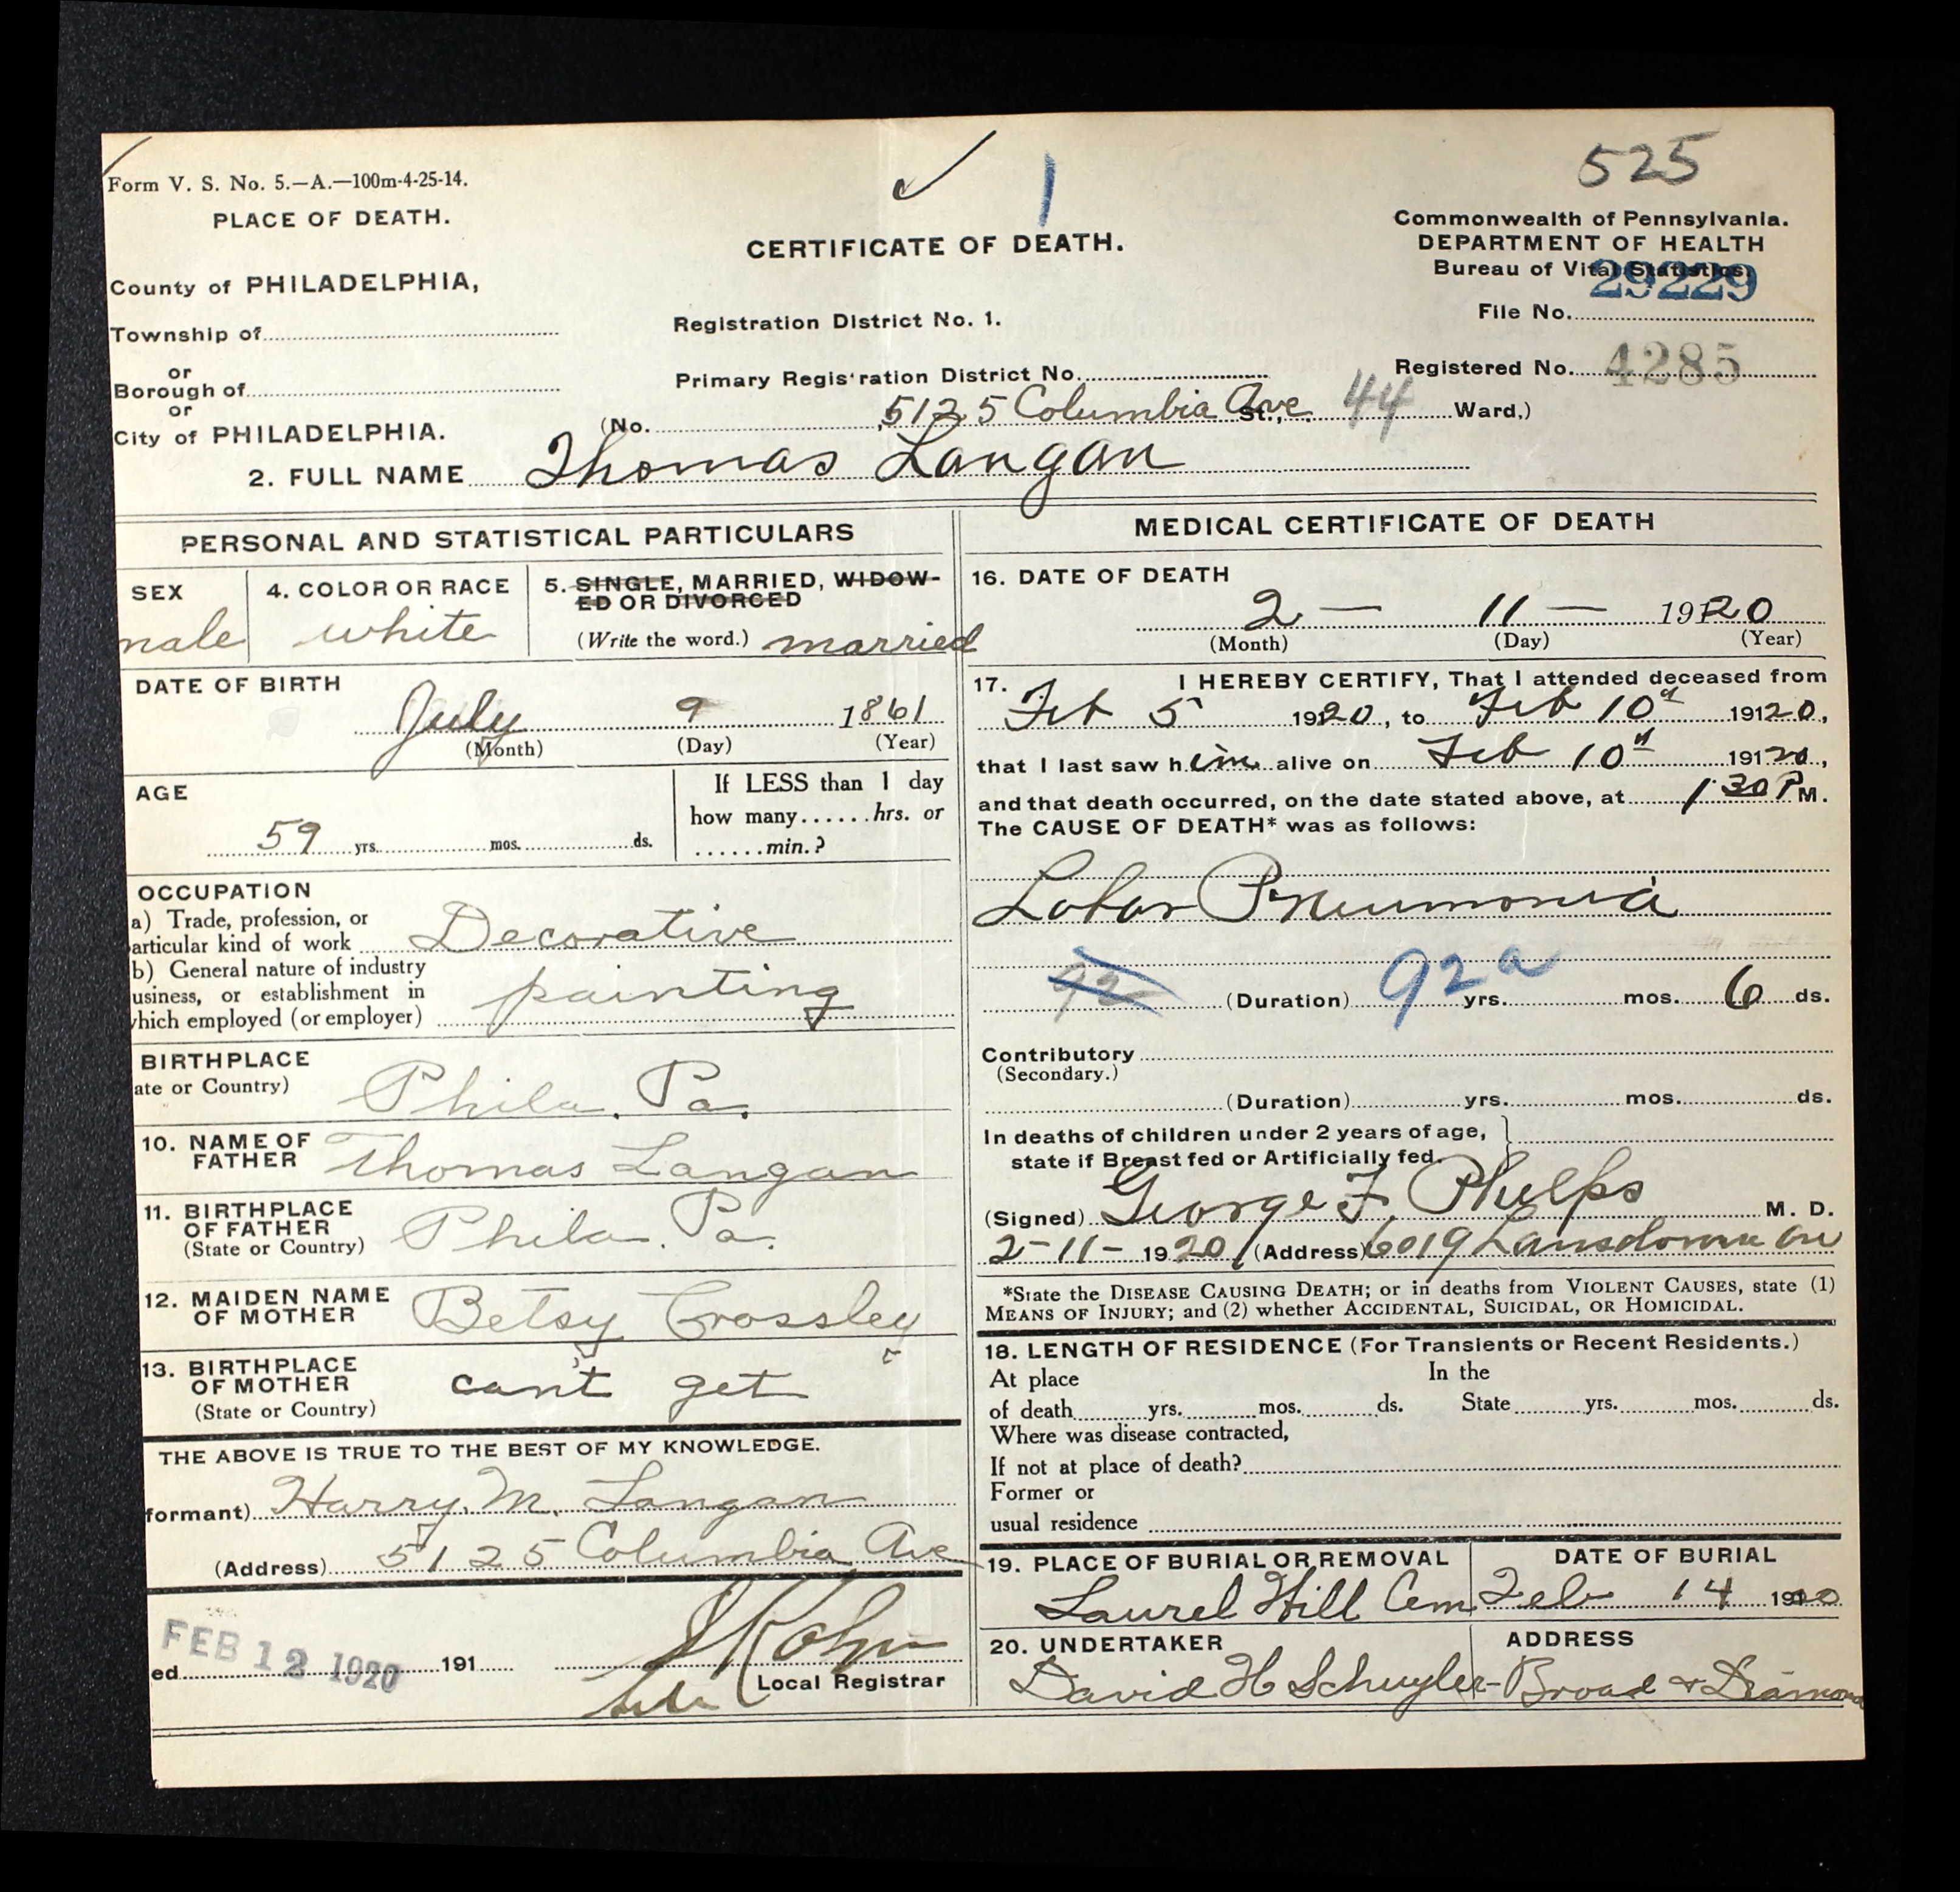 525
Form V. S. No. 5.—A.—100m-4-25-14.
1
PLACE OF DEATH.
Commonwealth of Pennsylvania.
CERTIFICATE OF DEATH.
DEPARTMENT OF HEALTH
Bureau of Vital Statistics.
29229
County of PHILADELPHIA,
File No.
Township of
Registration District No. 1.
or
Borough of
Primary Registration District No.
Registered No. 4285
or
City of PHILADELPHIA.
(No. 5125 Columbia Ave St., 44 Ward,)
2. FULL NAME Thomas Langan
PERSONAL AND STATISTICAL PARTICULARS
SEX
male
4. COLOR OR RACE
white
5. SINGLE, MARRIED, WIDOW-
ED OR DIVORCED
(Write the word.) married
DATE OF BIRTH
July 9 1861
(Month) (Day) (Year)
AGE
59 yrs. mos. ds.
If LESS than 1 day
how many...... hrs. or
...... min.?
OCCUPATION
a) Trade, profession, or
articular kind of work Decorative
b) General nature of industry
usiness, or establishment in
hich employed (or employer) painting
BIRTHPLACE
ate or Country) Phila. Pa.
10. NAME OF
FATHER Thomas Langan
11. BIRTHPLACE
OF FATHER
(State or Country) Phila. Pa.
12. MAIDEN NAME
OF MOTHER Betsy Crossley
13. BIRTHPLACE
OF MOTHER
(State or Country) can't get
THE ABOVE IS TRUE TO THE BEST OF MY KNOWLEDGE.
formant) Harry. M. Langan
(Address) 5125 Columbia Ave
FEB 12 1920
ed 191
Local Registrar
MEDICAL CERTIFICATE OF DEATH
16. DATE OF DEATH
2 — 11 — 1920
(Month) (Day) (Year)
17. I HEREBY CERTIFY, That I attended deceased from
Feb 5 1920, to Feb 10th 19120,
that I last saw him alive on Feb 10th 19120,
and that death occurred, on the date stated above, at 1 30 P M.
The CAUSE OF DEATH* was as follows:
Lobar Pneumonia
92 (Duration) 92a yrs. mos. 6 ds.
Contributory
(Secondary.)
(Duration) yrs. mos. ds.
In deaths of children under 2 years of age,
state if Breast fed or Artificially fed
(Signed) George F. Phelps M. D.
2-11-1920 (Address) 6019 Lansdowne Ave
*State the DISEASE CAUSING DEATH; or in deaths from VIOLENT CAUSES, state (1)
MEANS OF INJURY; and (2) whether ACCIDENTAL, SUICIDAL, OR HOMICIDAL.
18. LENGTH OF RESIDENCE (For Transients or Recent Residents.)
At place In the
of death yrs. mos. ds. State yrs. mos. ds.
Where was disease contracted,
If not at place of death?
Former or
usual residence
19. PLACE OF BURIAL OR REMOVAL
Laurel Hill Cem
DATE OF BURIAL
Feb 14 1920
20. UNDERTAKER
David H Schuyler -
ADDRESS
Broad & Diamond